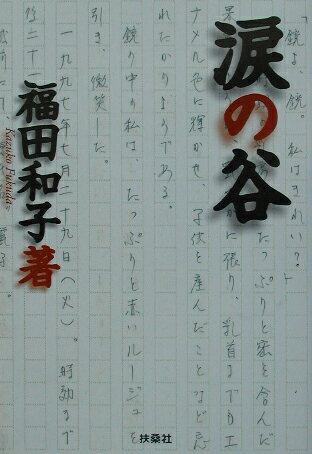 涙の谷
福田和子著
Kazuko Fukuda
「鏡よ、鏡。私はきれい？」
たっぷりと蜜を含んだ
果
に張り、乳首までもエ
ナメル色に輝かせ、子供を産んだことなど忘
れたかのようである。
鏡の中の私は、たっぷりと赤いルージュを
引き、微笑した。
一九九七年七月二十九日（火）。時効まで
二十一
扶桑社